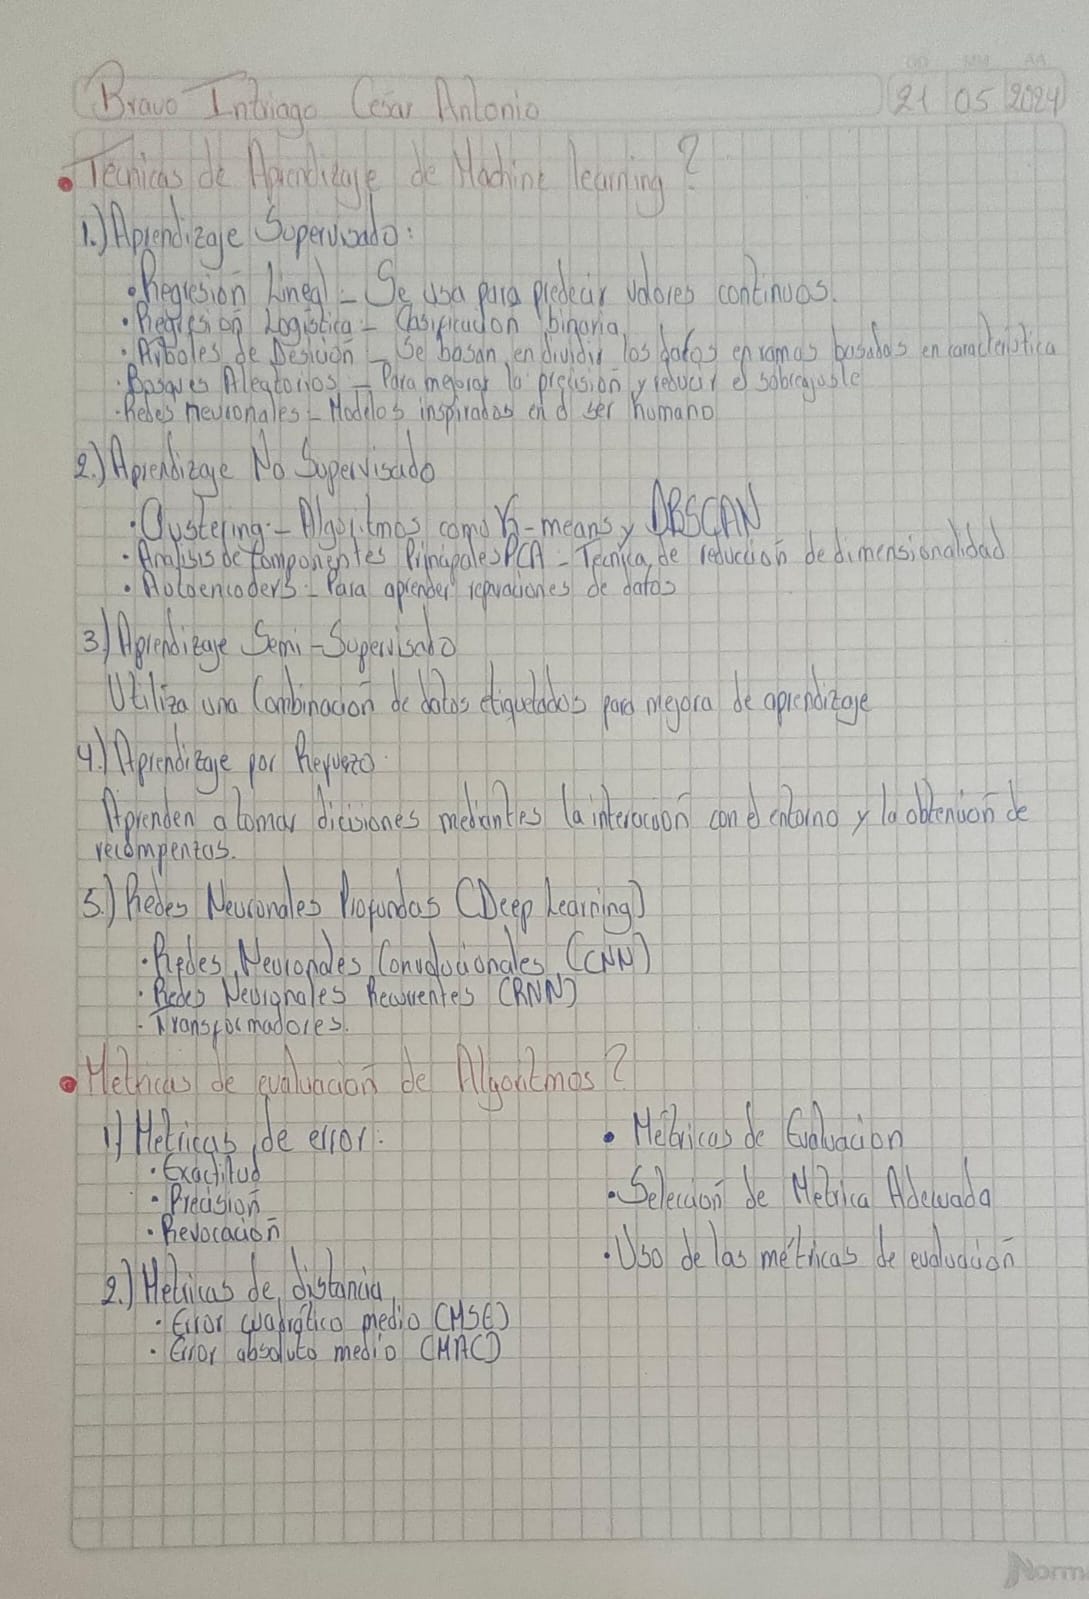 DD MM AA
Bravo Intriago Cesar Antonio 21 05 2024
• Tecnicas de Aprendizaje de Machine learning?
1.) Aprendizaje Supervisado:
• Regresion Lineal - Se usa para predecir valores continuos.
• Regresion Logistica - Clasificacion binaria
• Arboles de Desicion - Se basan en dividir los datos en ramas basados en caracteristica
• Bosques Aleatorios - Para mejorar la precision y reducir el sobreajuste
• Redes neuronales - Modelos inspirados en el ser humano
2.) Aprendizaje No Supervisado
• Clustering - Algoritmos como K-means y DBSCAN
• Analisis de Componentes Principales PCA - Tecnica de reduccion de dimensionalidad
• Autoencoders - Para aprender de datos
3.) Aprendizaje Semi-Supervisado
Utiliza una Combinacion de datos etiquetados para mejora de aprendizaje
4.) Aprendizaje por
Aprenden a tomar diciciones mediantes la interaccion con el entorno y la obtencion de
recompentas.
5.) Redes Neuronales Profundas (Deep Learning)
• Redes Neuronales Convolucionales (CNN)
• Redes Neuronales Recurrentes (RNN)
• Transformadores.
• Metricas de evaluacion de Algoritmos?
1) Metricas de error:
• Exactitud
• Precision
• Revocacion
2.) Metricas de distancia
• Error cuadratico medio (MSE)
• Error absoluto medio
• Métricas de Evaluacion
• Seleccion de Metrica Adecuada
• Uso de las métricas de evaluacion
Norma